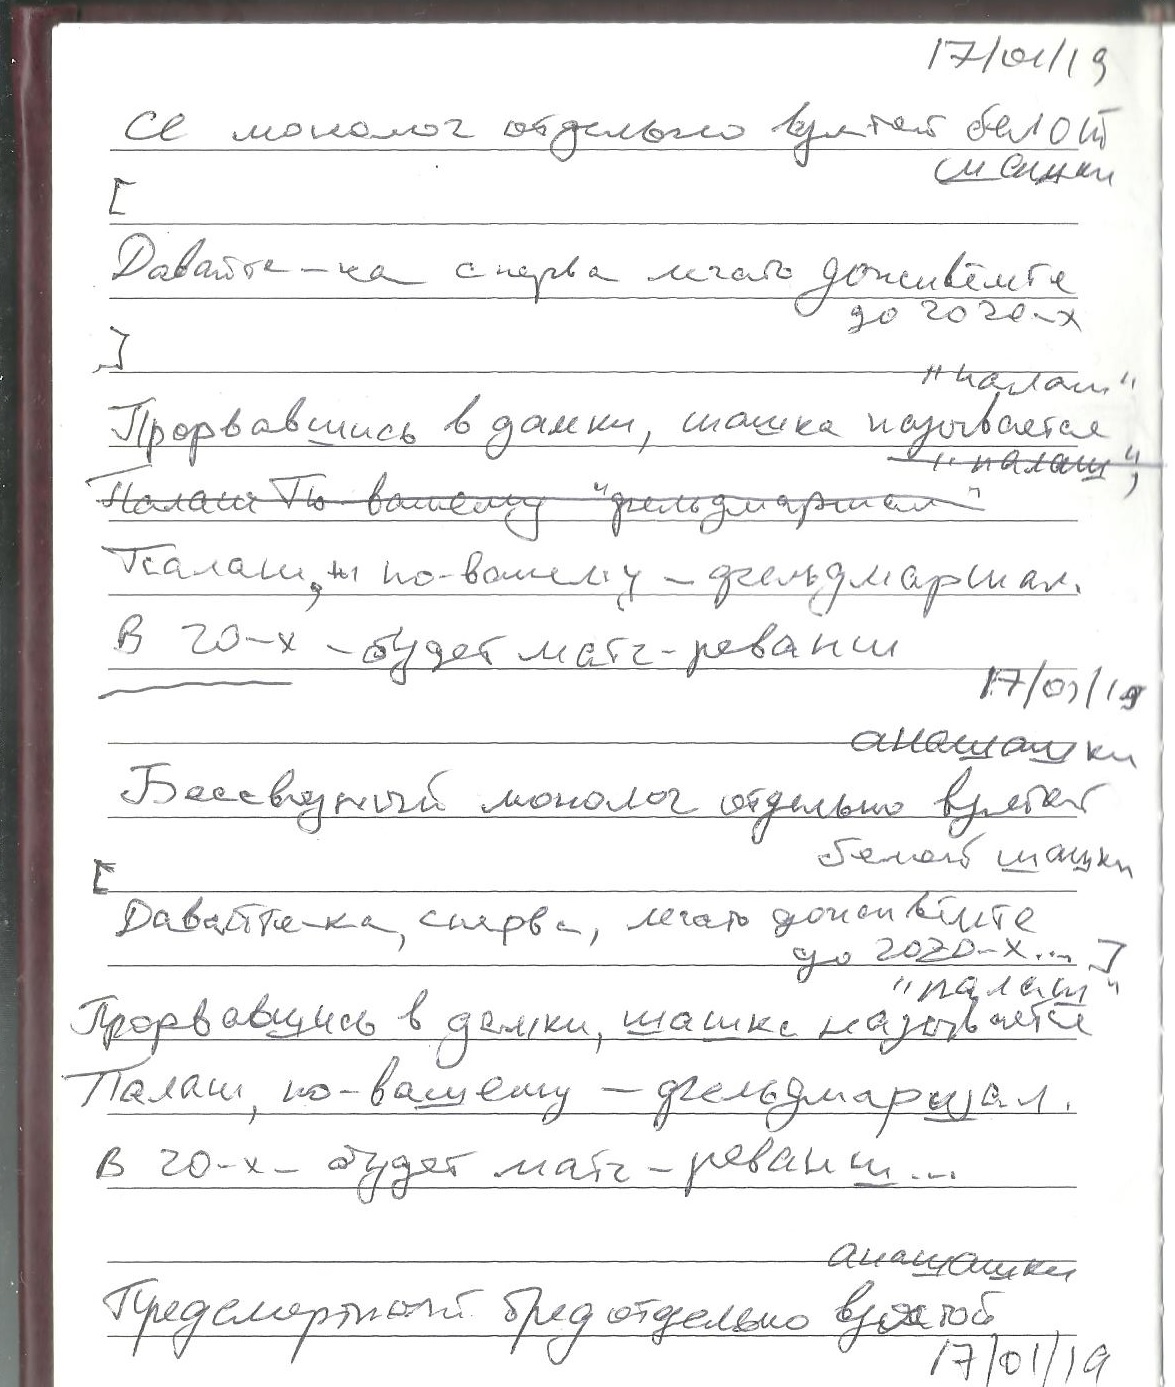 17/01/19
Се монолог отдельно взятой белой
шашки
[
Давайте-ка сперва лечать доживёмте
до 2020-х
]
"палаш"
Прорвавшись в дамки, шашка называется
"палаш",
Палаш По вашему "фельдмаршал"
Палаш, по-вашему – фельдмаршал.
В 20-х – будет матч-реванш
17/01/19
анашашки
Бессвязный монолог отдельно взятой
белой шашки
[
Давайте-ка, сперва, лечать доживёмте
до 2020-х... ]
"палаш"
Прорвавшись в дамки, шашка называется
Палаш, по-вашему – фельдмаршал.
В 20-х – будет матч-реванш...
анашашки
Предсмертный бред отдельно взятой
17/01/19